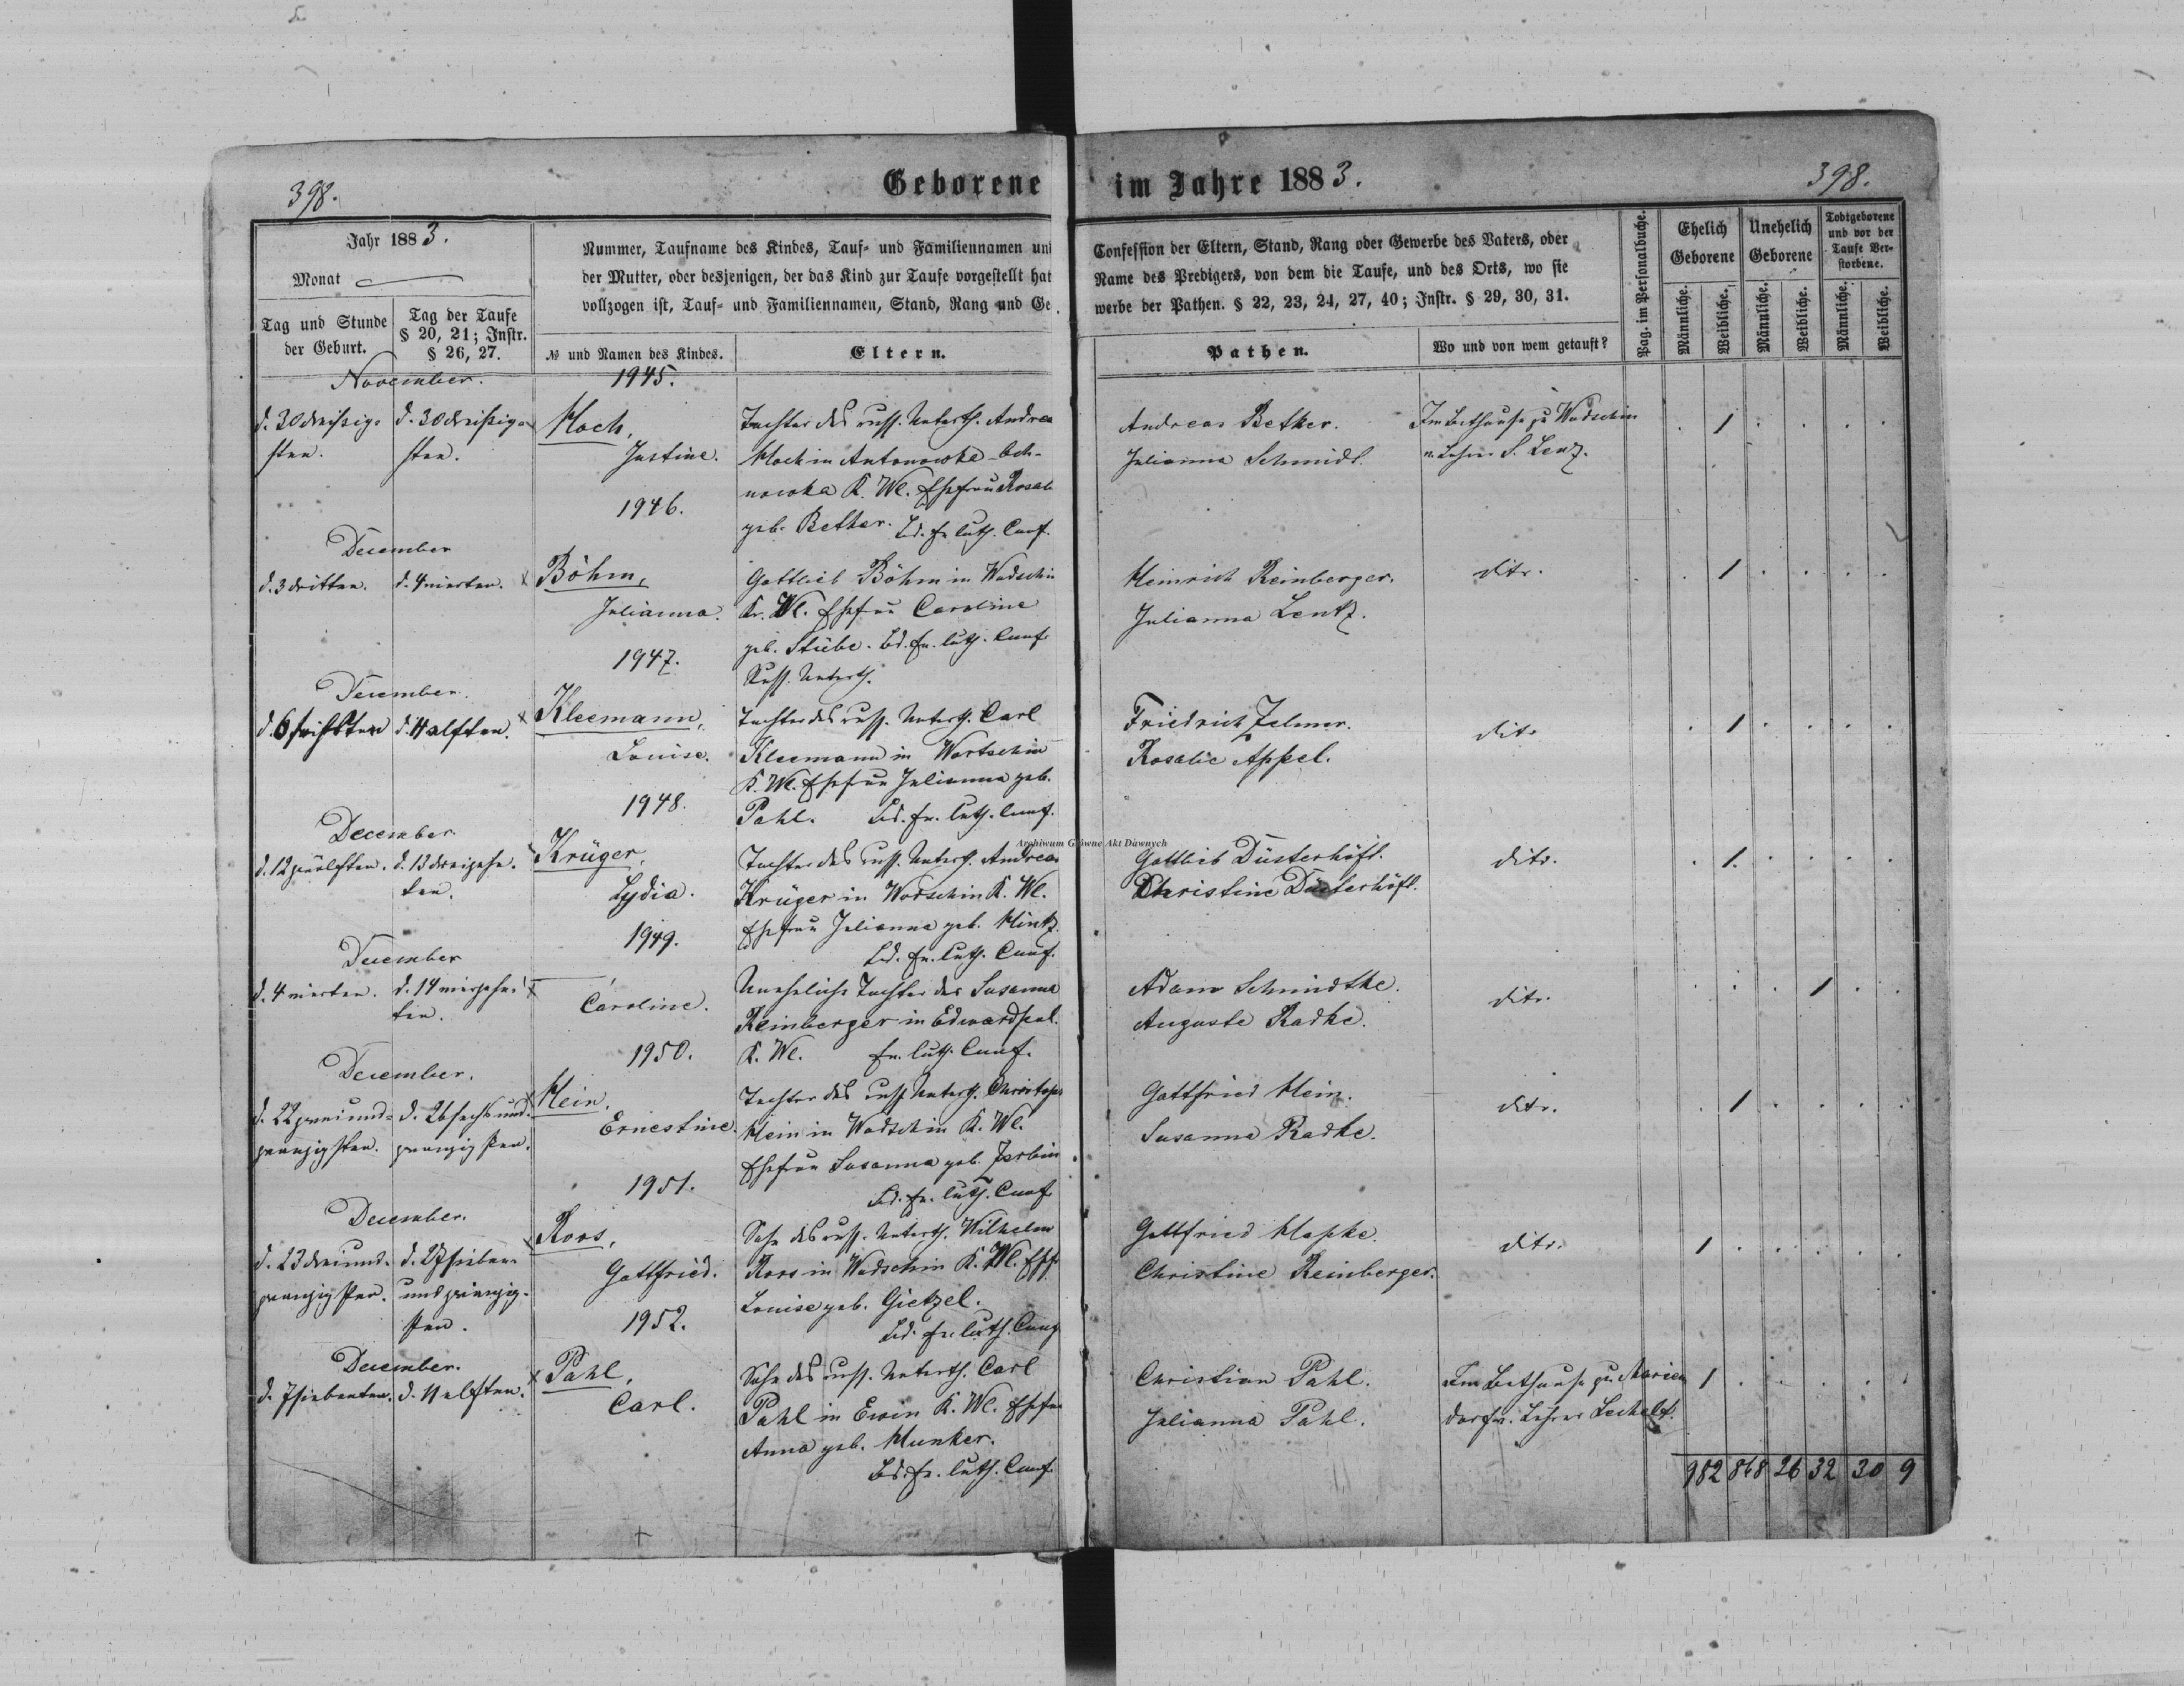 398.
Geborene im Jahre 1883.
398.
Jahr 1883.
Monat
Tag und Stunde der Geburt.
Tag der Taufe § 20, 21; Instr. § 26, 27.
Nummer, Taufname des Kindes, Tauf- und Familiennamen un
der Mutter, oder desjenigen, der das Kind zur Taufe vorgestellt hat
vollzogen ist, Tauf- und Familiennamen, Stand, Rang und Ge
№ und Namen des Kindes.
Eltern.
Confession der Eltern, Stand, Rang oder Gewerbe des Vaters, oder
Name des Predigers, von dem die Taufe, und des Orts, wo sie
werbe der Pathen. § 22, 23, 24, 27, 40; Instr. § 29, 30, 31.
Pathen.
Wo und von wem getauft?
Pag. im Personalbuche.
Ehelich Geborene
Unehelich Geborene
Todtgeborene und vor der Taufe Verstorbene.
Männliche.
Weibliche.
Männliche.
Weibliche.
Männliche.
Weibliche.
November.
1945.
d. 30 dreißig- d. 30 dreißig-
sten. sten.
Hoch,
Justine.
Tochter des russ. Unterth. Andrea
Hoch in Antonowka-
nowka K. Wl. Ehefrau Rosal
geb. Betker. Bd. ev. luth. Conf.
Andreas Betker.
Julianna Schmidt.
Im Bethause zu Wodschin
v. Lehrer S. Lenz.
1
1946.
December
d. 3 dritten. d. 4 vierten. x
Böhm,
Julianna.
Gottlieb Böhm in Wodschin
Kr. Wl. Ehefrau Caroline
geb. Stübe. Bd. ev. luth. Conf.
Russ. Unterth.
Heinrich Reinberger.
Julianna Lentz.
dito.
1
1947.
December.
d. 6 sechsten d. 11 elften. x
Kleemann,
Louise.
Tochter des russ. Unterth. Carl
Kleemann in Wortschin
K. Wl. Ehefrau Julianna geb.
Pahl. Bd. ev. luth. Conf.
Friedrich Zelmer.
Rosalie Appel.
dito
1
1948.
December.
d. 12 zwölften. d. 13 dreizehn-
ten.
Krüger,
Lydia.
Tochter des russ. Unterth. Andreas
Krüger in Wodschin K. Wl.
Ehefrau Julianna geb. Hintz
Bd. ev. luth. Conf.
Archiwum Główne Akt Dawnych
Gottlieb Düsterhöft.
Christine Düsterhöft.
dito.
1
1949.
December
d. 4 vierten. d. 14 vierzehn- x
ten.
Caroline.
Uneheliche Tochter der Susanna
Reinberger in Edwardpol.
K. Wl. ev. luth. Conf.
Adam Schmidtke.
Auguste Radke.
dito.
1
1950.
December.
d. 22 zwei und- d. 26 sechs und- x
zwanzigsten. zwanzigsten.
Hein,
Ernestine.
Tochter des russ. Unterth. Christoph
Hein in Wodschin K. Wl.
Ehefrau Susanna geb. Zerbin
Bd. ev. luth. Conf.
Gottfried Hein.
Susanna Radke.
dito.
1
1951.
December.
d. 23 drei und- d. 27 sieben-
zwanzigsten. und zwanzig-
sten.
Roos,
Gottfried.
Sohn des russ. Unterth. Wilhelm
Roos in Wodschin K. Wl. Ehfr
Louise geb. Gietzel.
Bd. ev. luth. Conf
Gottfried Hapke.
Christine Reinberger.
dito.
1
1952.
December.
d. 7 siebenten. d. 11 elften. x
Pahl,
Carl.
Sohn des russ. Unterth. Carl
Pahl in Erwin K. Wl. Ehefr
Anna geb. Hunker.
Bd. ev. luth. Conf.
Christian Pahl.
Julianna Pahl.
Im Bethause zu Marien
dorf v. Lehrer Lechelt.
1
982 868 26 32 30 9